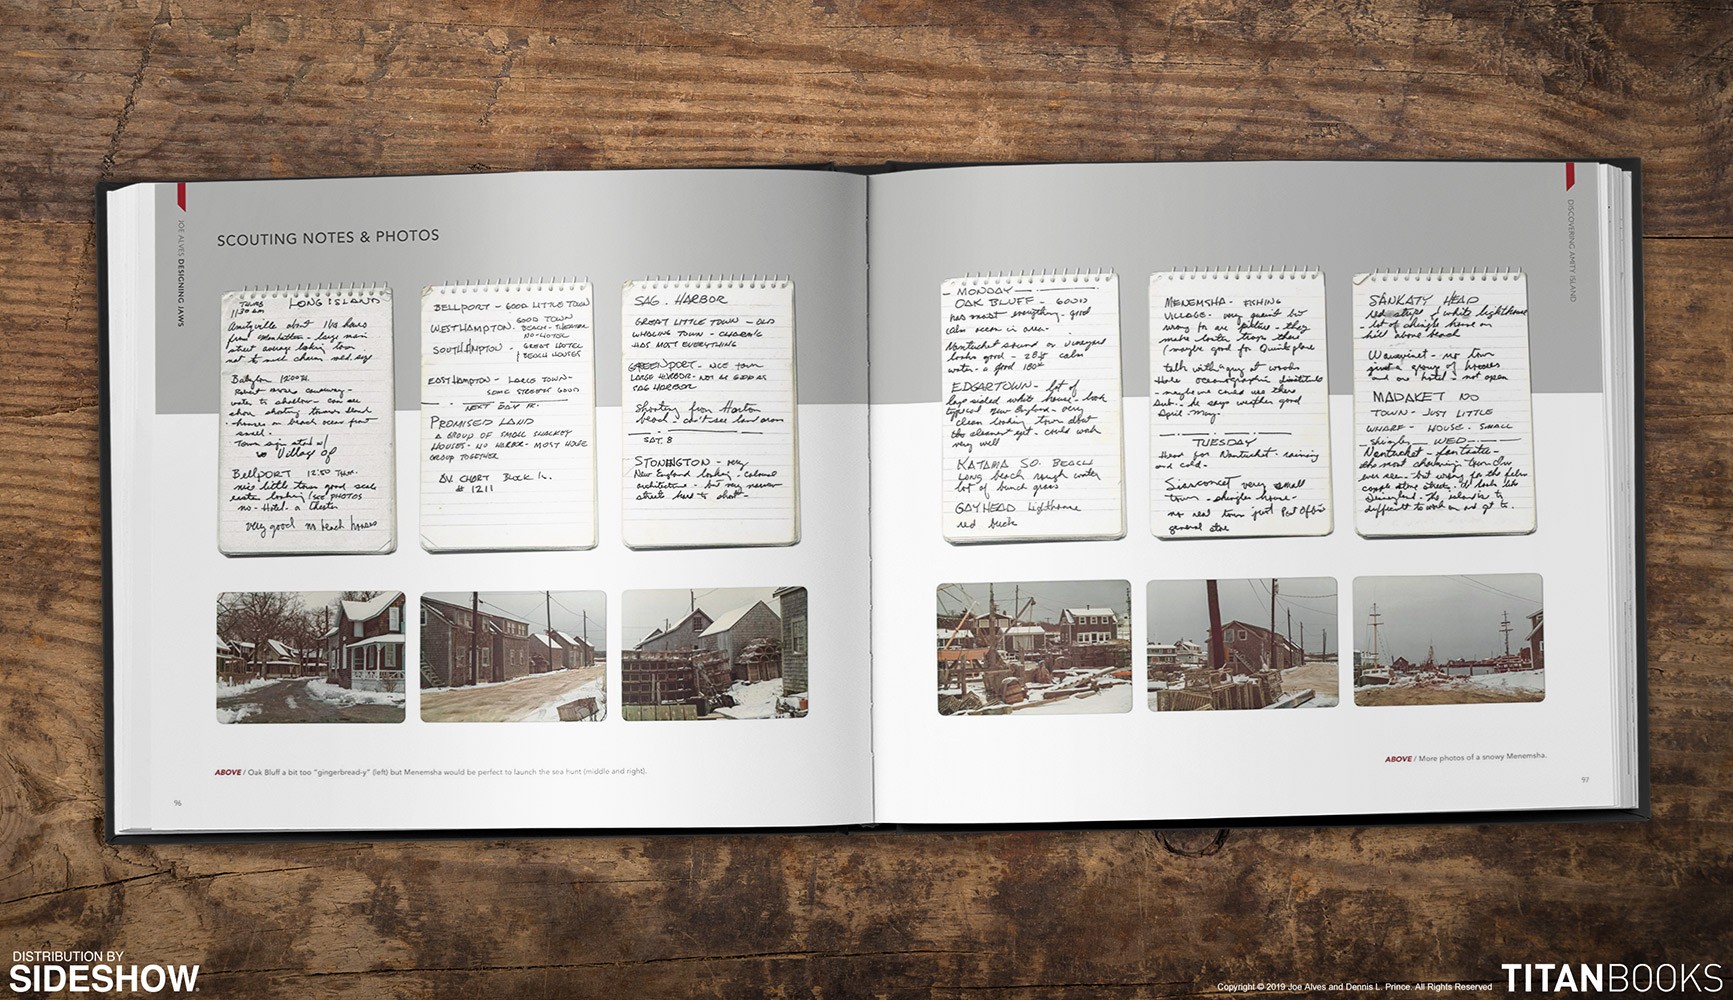 SCOUTING NOTES & PHOTOS
JOE ALVES DESIGNING JAWS
THURS LONG ISLAND
11:30 AM
Amityville about 1½ hours
from Manhattan - large main
street average looking town
not to much charm
Babylon
water to shallow - can see
shore shooting towards land
- houses on beach ocean front
small -
Town sign start w/
Village of
BELLPORT 12:50 THUR.
nice little town good scale
eastern looking (see PHOTOS
no - Hotel - a theater
very good no beach houses
BELLPORT - GOOD LITTLE TOWN
WESTHAMPTON - GOOD TOWN
BEACH - THEATER
NO - HOTEL
SOUTHAMPTON - GREAT HOTEL
BEACH HOUSES
EAST HAMPTON - LARGE TOWN -
SOME STREETS GOOD
NEXT DAY FR.
PROMISED LAND
A GROUP OF SMALL SHACKEY
HOUSES - NO HARBOR - MOST HOUSE
GROUP TOGETHER
CHART BLOCK IS.
# 1211
SAG. HARBOR
GREAT LITTLE TOWN - OLD
WHALING TOWN - CHARMING
HAS MOST EVERYTHING
GREENPORT - NICE TOWN
LARGE HARBOR - NOT AS GOOD AS
SAG HARBOR
Shooting from
beach - can't see land
SAT. 8
STONINGTON - very
New England looking - colonial
architecture - but very narrow
streets hard to shoot -
DISCOVERING AMITY ISLAND
- MONDAY -
OAK BLUFF - GOOD
has most everything - good
calm ocean in area -
Nantucket sound or vineyard
looks good - 28 ft calm
water - a good 180°
EDGARTOWN - lot of
lap sided white house - look
typical New England - very
clean looking town about
the cleanest yet - could work
very well
KATAMA SO. BEACH
Long beach rough water
lot of beach grass
GAY HEAD lighthouse
red brick
MENEMSHA - FISHING
VILLAGE - very quaint but
they
make lobster traps there
(maybe good for Quint's place
talk with a guy at woods
Hole oceanographic institute
- maybe we could use there
he says weather good
April - May -
TUESDAY
Head for Nantucket - raining
and cold -
Siasconset very small
town - shingle house -
no real town just Post Office
general store
SANKATY HEAD
red stripe & white lighthouse
- lot of shingle house on
hill above beach
Wauwinet - no town
just a group of houses
and one hotel - not open
MADAKET NO
TOWN - JUST LITTLE
WHARF - HOUSE - SMALL
- Shingles - WED -
Nantucket - fantastic -
the most charming town I've
ever seen - but wrong for the film
cobble stone streets - it'd look like
Disneyland - The island is to
difficult to work on and get to.
ABOVE / Oak Bluff a bit too "gingerbread-y" (left) but Menemsha would be perfect to launch the sea hunt (middle and right).
ABOVE / More photos of a snowy Menemsha.
96
97
DISTRIBUTION BY
SIDESHOW
Copyright © 2019 Joe Alves and Dennis L. Prince. All Rights Reserved
TITANBOOKS